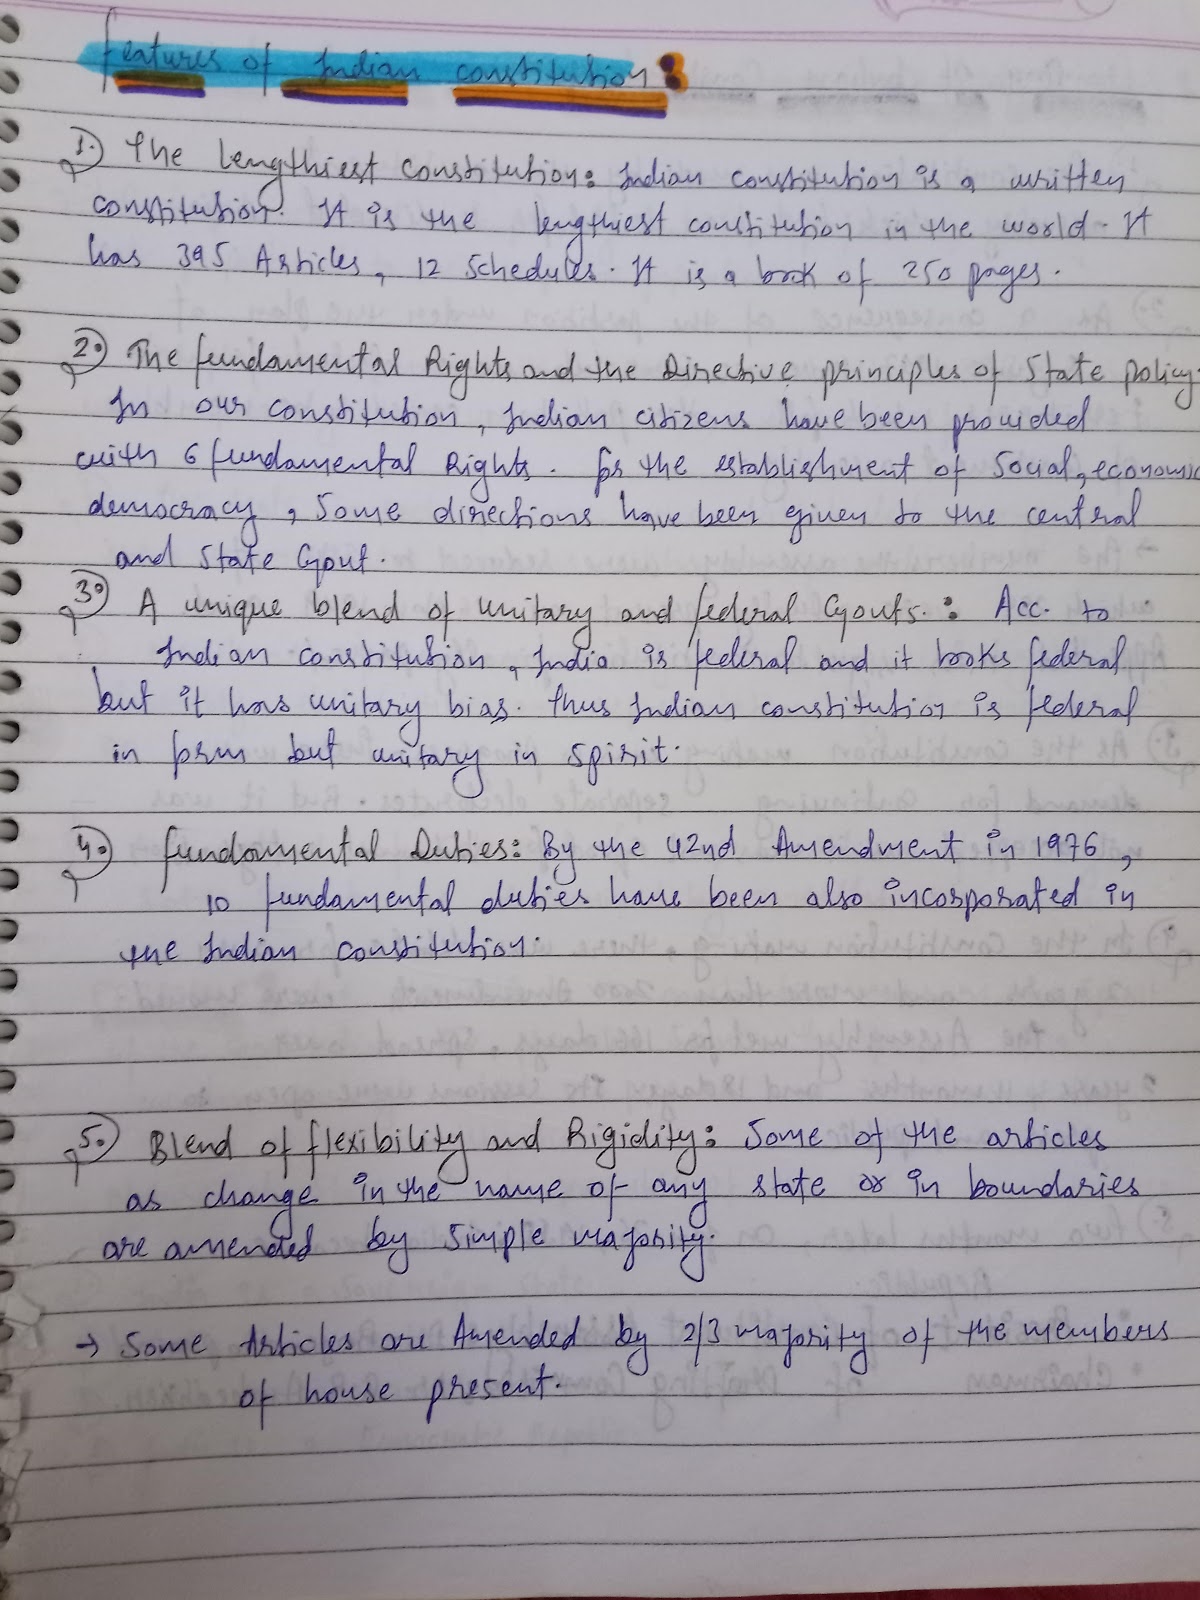 features of Indian constitution:
1.) The Lengthiest Constitution: Indian constitution is a written
constitution. It is the lengthiest constitution in the world. It
has 395 Articles, 12 Schedules. It is a book of 250 pages.
2.) The fundamental Rights and the Directive principles of State policy:
In our constitution, Indian citizens have been provided
with 6 fundamental Rights. for the establishment of Social, economic
democracy, Some directions have been given to the central
and State Govt.
3.) A unique blend of unitary and federal Govts.: Acc. to
Indian constitution, India is federal and it looks federal
but it has unitary bias. Thus Indian constitution is federal
in form but unitary in spirit.
4.) fundamental Duties: By the 42nd Amendment in 1976,
10 fundamental duties have been also incorporated in
the Indian constitution.
5.) Blend of flexibility and Rigidity: Some of the articles
as change in the name of any state or in boundaries
are amended by simple majority.
→ Some Articles are Amended by 2/3 majority of the members
of house present.